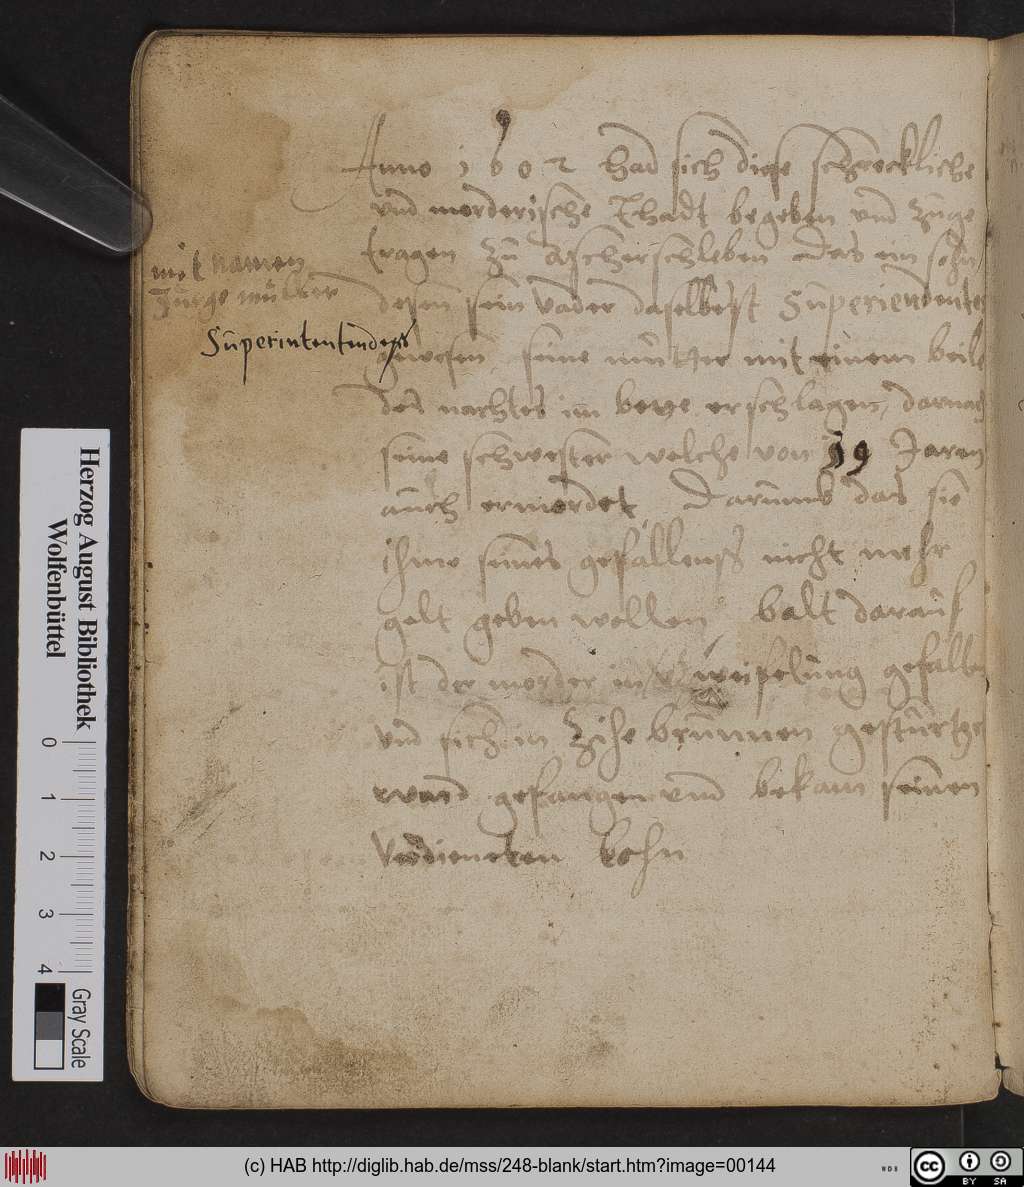 Anno 1602 had sich diese schreckliche
vnd morderische Thadt begeben vnd zuge
tragen zu Ascherschleben das ein sohn
mit namen
Jürge müller
desen sein vader daselbest Superiendenten
Superintentindens
gewesen seine mutter mit einem beile
des nachtes im bette erschlagen, darnach
seine schwester welche von 19 Jaren
auch ermordet, Darumb das sie
ihme seines gefallenß nicht mehr
gelt geben wollen, balt darauf
ist der morder in zweifelung gefallen
vnd sich in Zihe brunnen gesturtzet
ward gefangen vnd bekam seinen
verdieneten lohn
Herzog August Bibliothek
Wolfenbüttel
0 1 2 3 4
Gray Scale
(c) HAB http://diglib.hab.de/mss/248-blank/start.htm?image=00144
WDB
cc BY SA